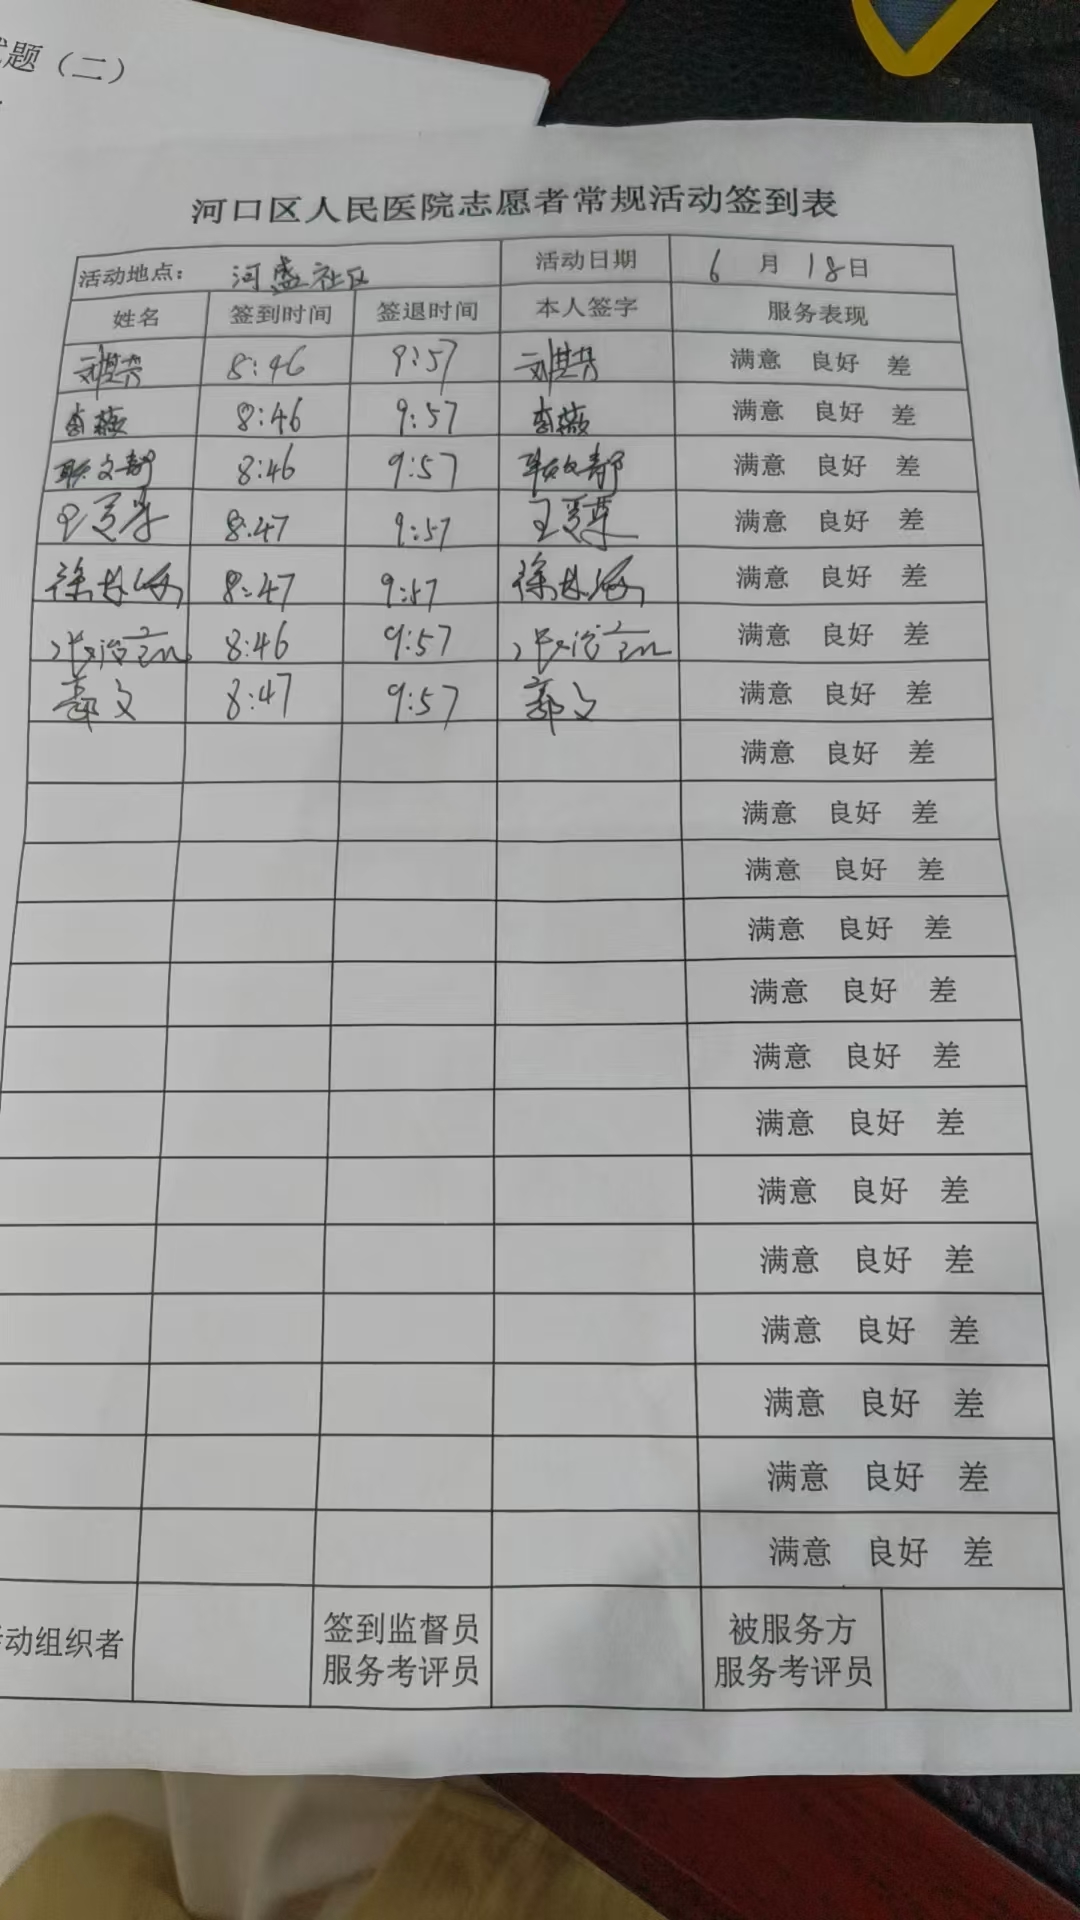 题（二）
河口区人民医院志愿者常规活动签到表
活动地点： 河盛社区 活动日期 6月18日
姓名 签到时间 签退时间 本人签字 服务表现
刘芸芳 8:46 9:57 刘芸芳 满意 良好 差
李薇 8:46 9:57 李薇 满意 良好 差
文静 8:46 9:57 文静 满意 良好 差
王 8:47 9:57 王 满意 良好 差
徐 8:47 9:57 徐 满意 良好 差
8:46 9:57 满意 良好 差
郭文 8:47 9:57 郭文 满意 良好 差
满意 良好 差
满意 良好 差
满意 良好 差
满意 良好 差
满意 良好 差
满意 良好 差
满意 良好 差
满意 良好 差
满意 良好 差
满意 良好 差
满意 良好 差
满意 良好 差
满意 良好 差
动组织者 签到监督员 被服务方
服务考评员 服务考评员